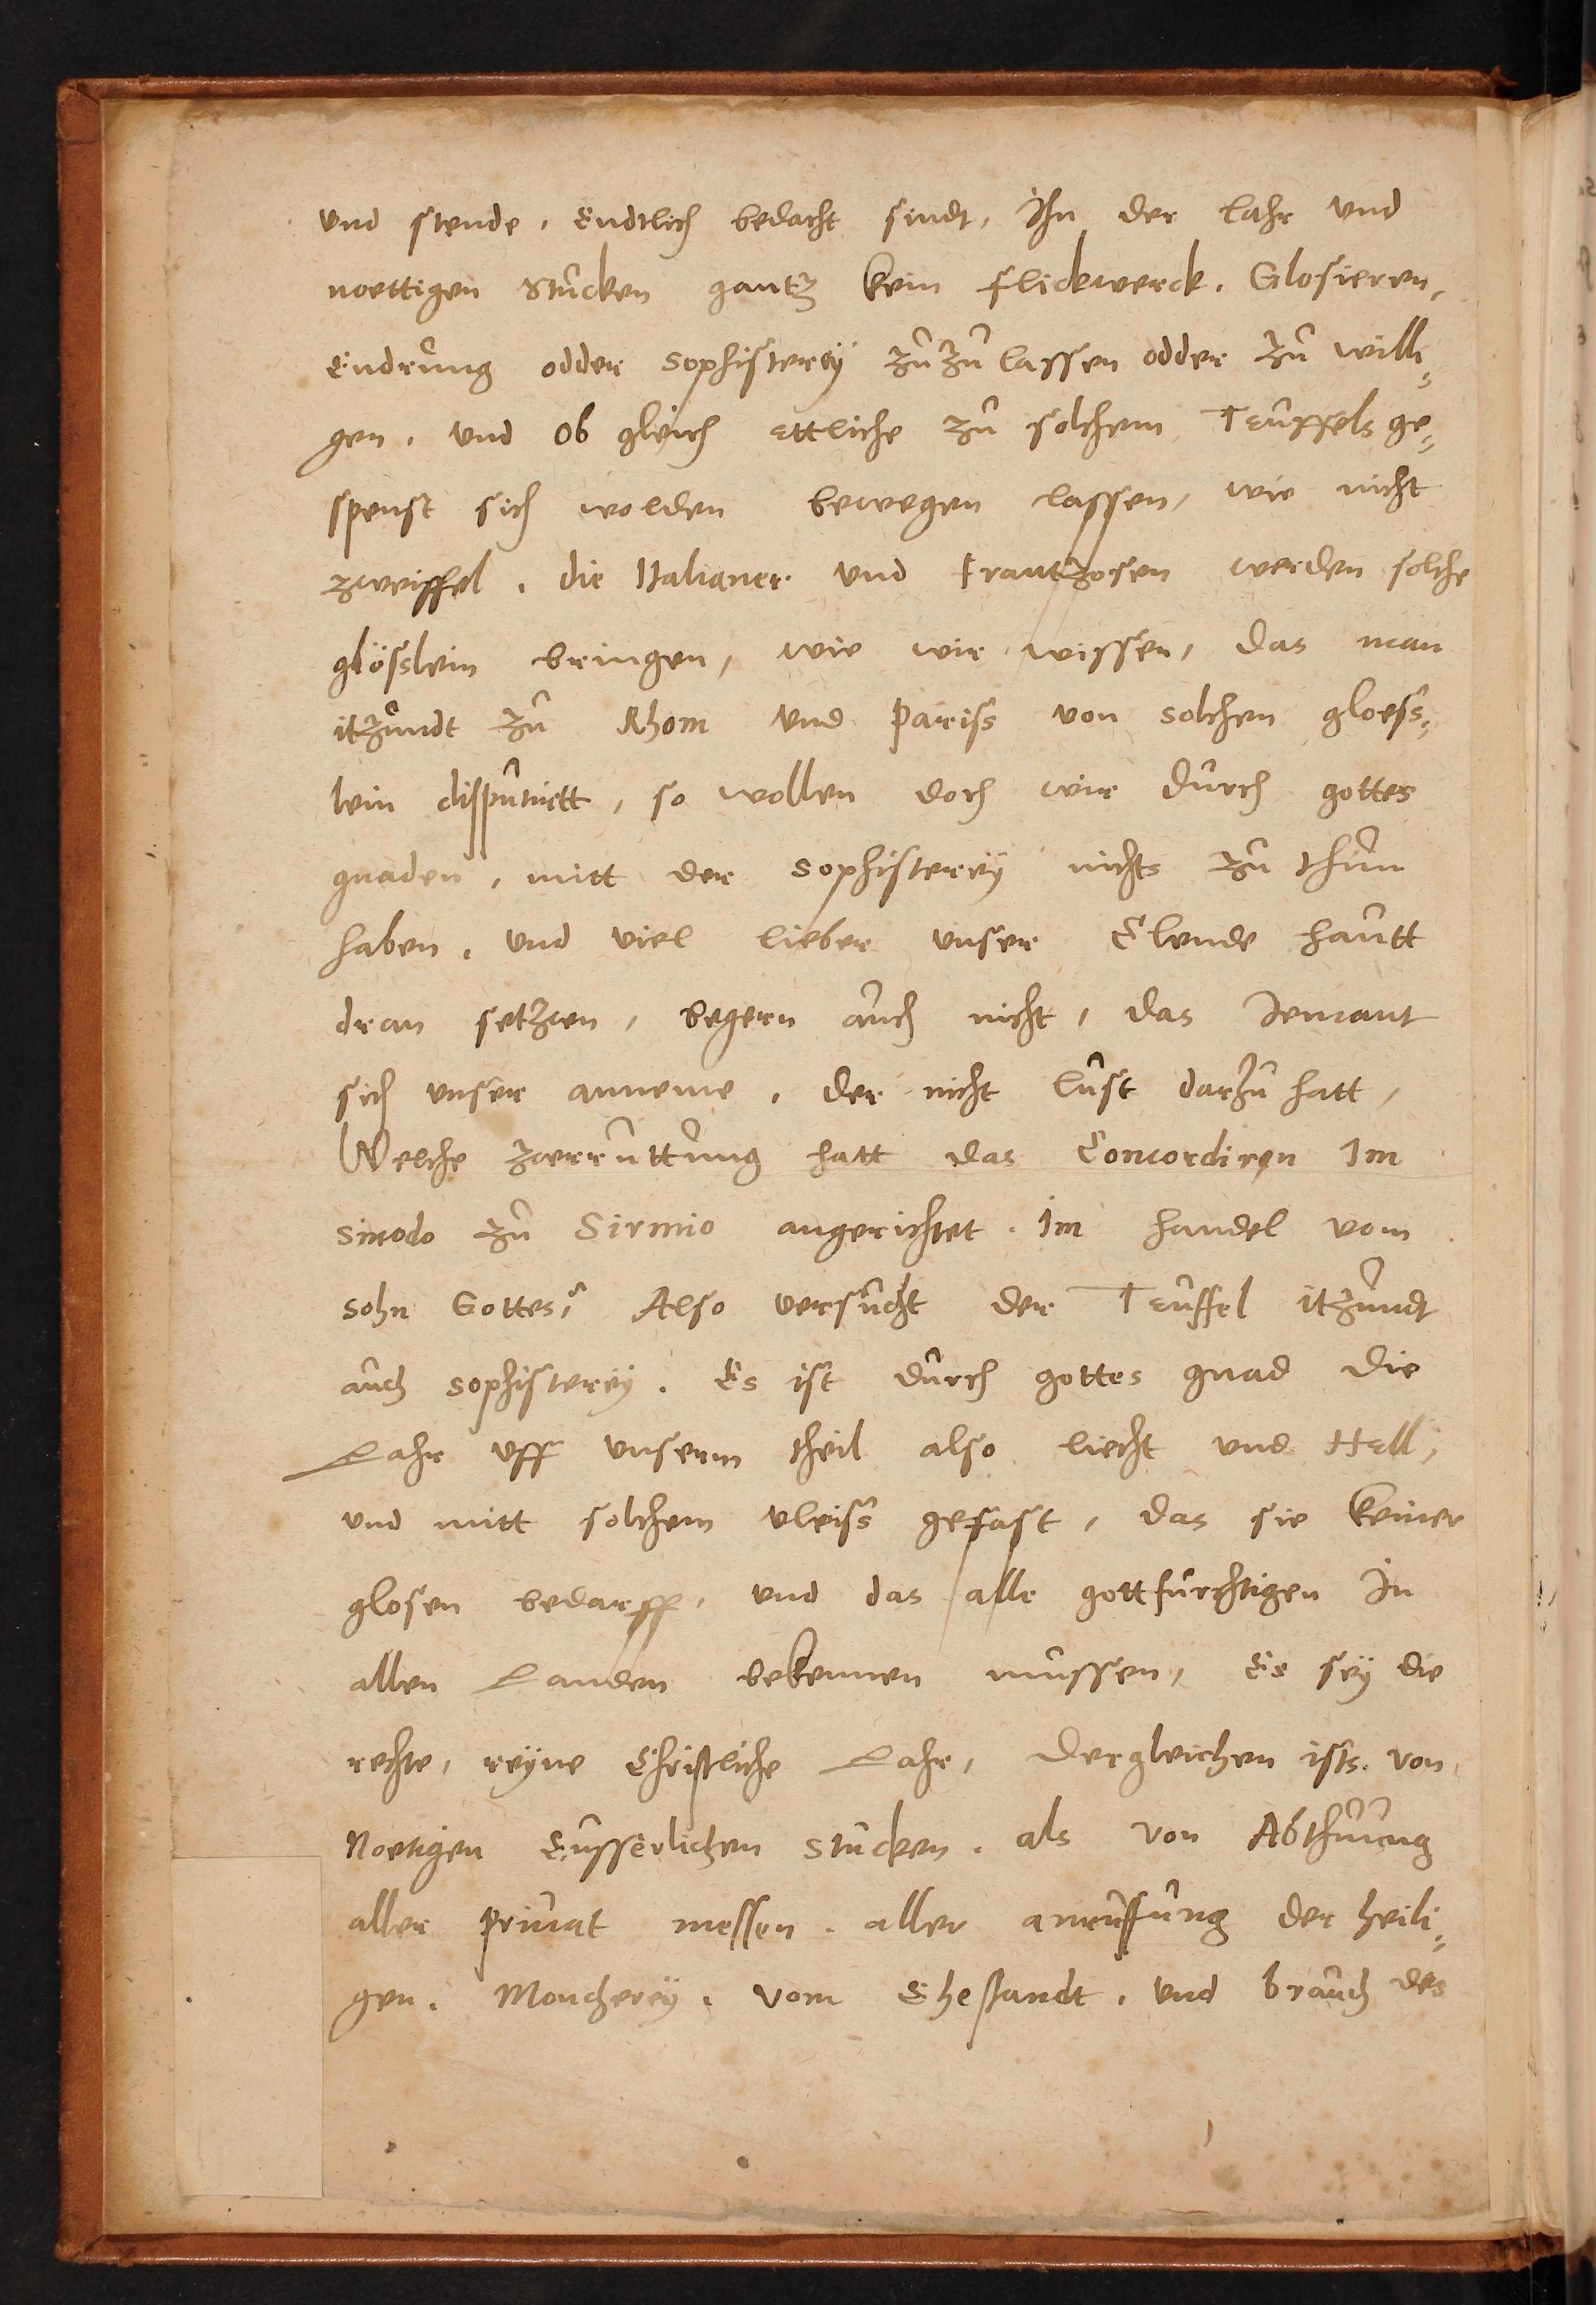 vnd stende, Endtlich bedacht sindt, Ihn der lahr vnd
noettigen Stucken gantz kein flickwerck. Glosieren,
Endrung odder sophisterey zuzulassen odder zu willi,,
gen. vnd ob gleich ettliche zu solchem Teuffels ge,,
spenst sich wolden bewegen lassen, wie nicht
zweiffel. die Italianer vnd frantzosen werden solche
glösslein bringen, wie wir wissen, das man
itzundt zu Rhom vnd Pariss von solchen gloess,,
lein disputiertt, so wollen doch wir durch gottes
gnaden, mitt der sophisterey nichts zu thun
haben. vnd viel lieber vnser Elende hautt
dran setzen, begern auch nicht, das Iemant
sich vnser anneme. der nicht lust darzu hatt,
Welche zerruttung hatt das Concordiren Im
sinodo zu Sirmio angerichtet. Im handel vom
sohn Gottes? Also versucht der Teuffel itzundt
auch sophisterey. Es ist durch gottes gnad die
Lahr vff vnserm theil also liecht vnd Hell,
vnd mitt solchem vleiss gefast, das sie keiner
glosen bedarff, vnd das alle gottfurchtigen In
allen Landen bekennen mussen, Es sey die
rechte, reyne Christliche Lahr, Dergleichen ists. von
Noetigen Eusserlichen stucken. als von Abthuung
aller priuat messen. aller anruffung der heili,,
gen. Moncherey. vom Ehestandt. vnd brauch des